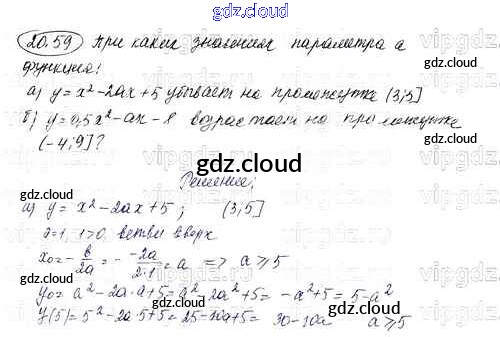 gdz.cloud
20.59 При каких значениях параметра а
gdz.cloud
функция:
а) y = x² - 2ax + 5 убывает на промежутке (3;5]
б) y = 0,5x² - ax - 8 возрастает на промежутке
(-4;9]?
gdz.cloud
gdz.cloud
Решение:
gdz.cloud
а) y = x² - 2ax + 5; (3;5]
a=1, 1>0, ветви вверх
gdz.cloud
x₀ = -b/2a = - -2a/2·1 = a => a ⩾ 5
y₀ = a² - 2a·a + 5 = a² - 2a² + 5 = -a² + 5 = 5 - a²
y(5) = 5² - 2a·5 + 5 = 25 - 10a + 5 = 30 - 10a a ⩾ 5
gdz.cloud
gdz.cloud